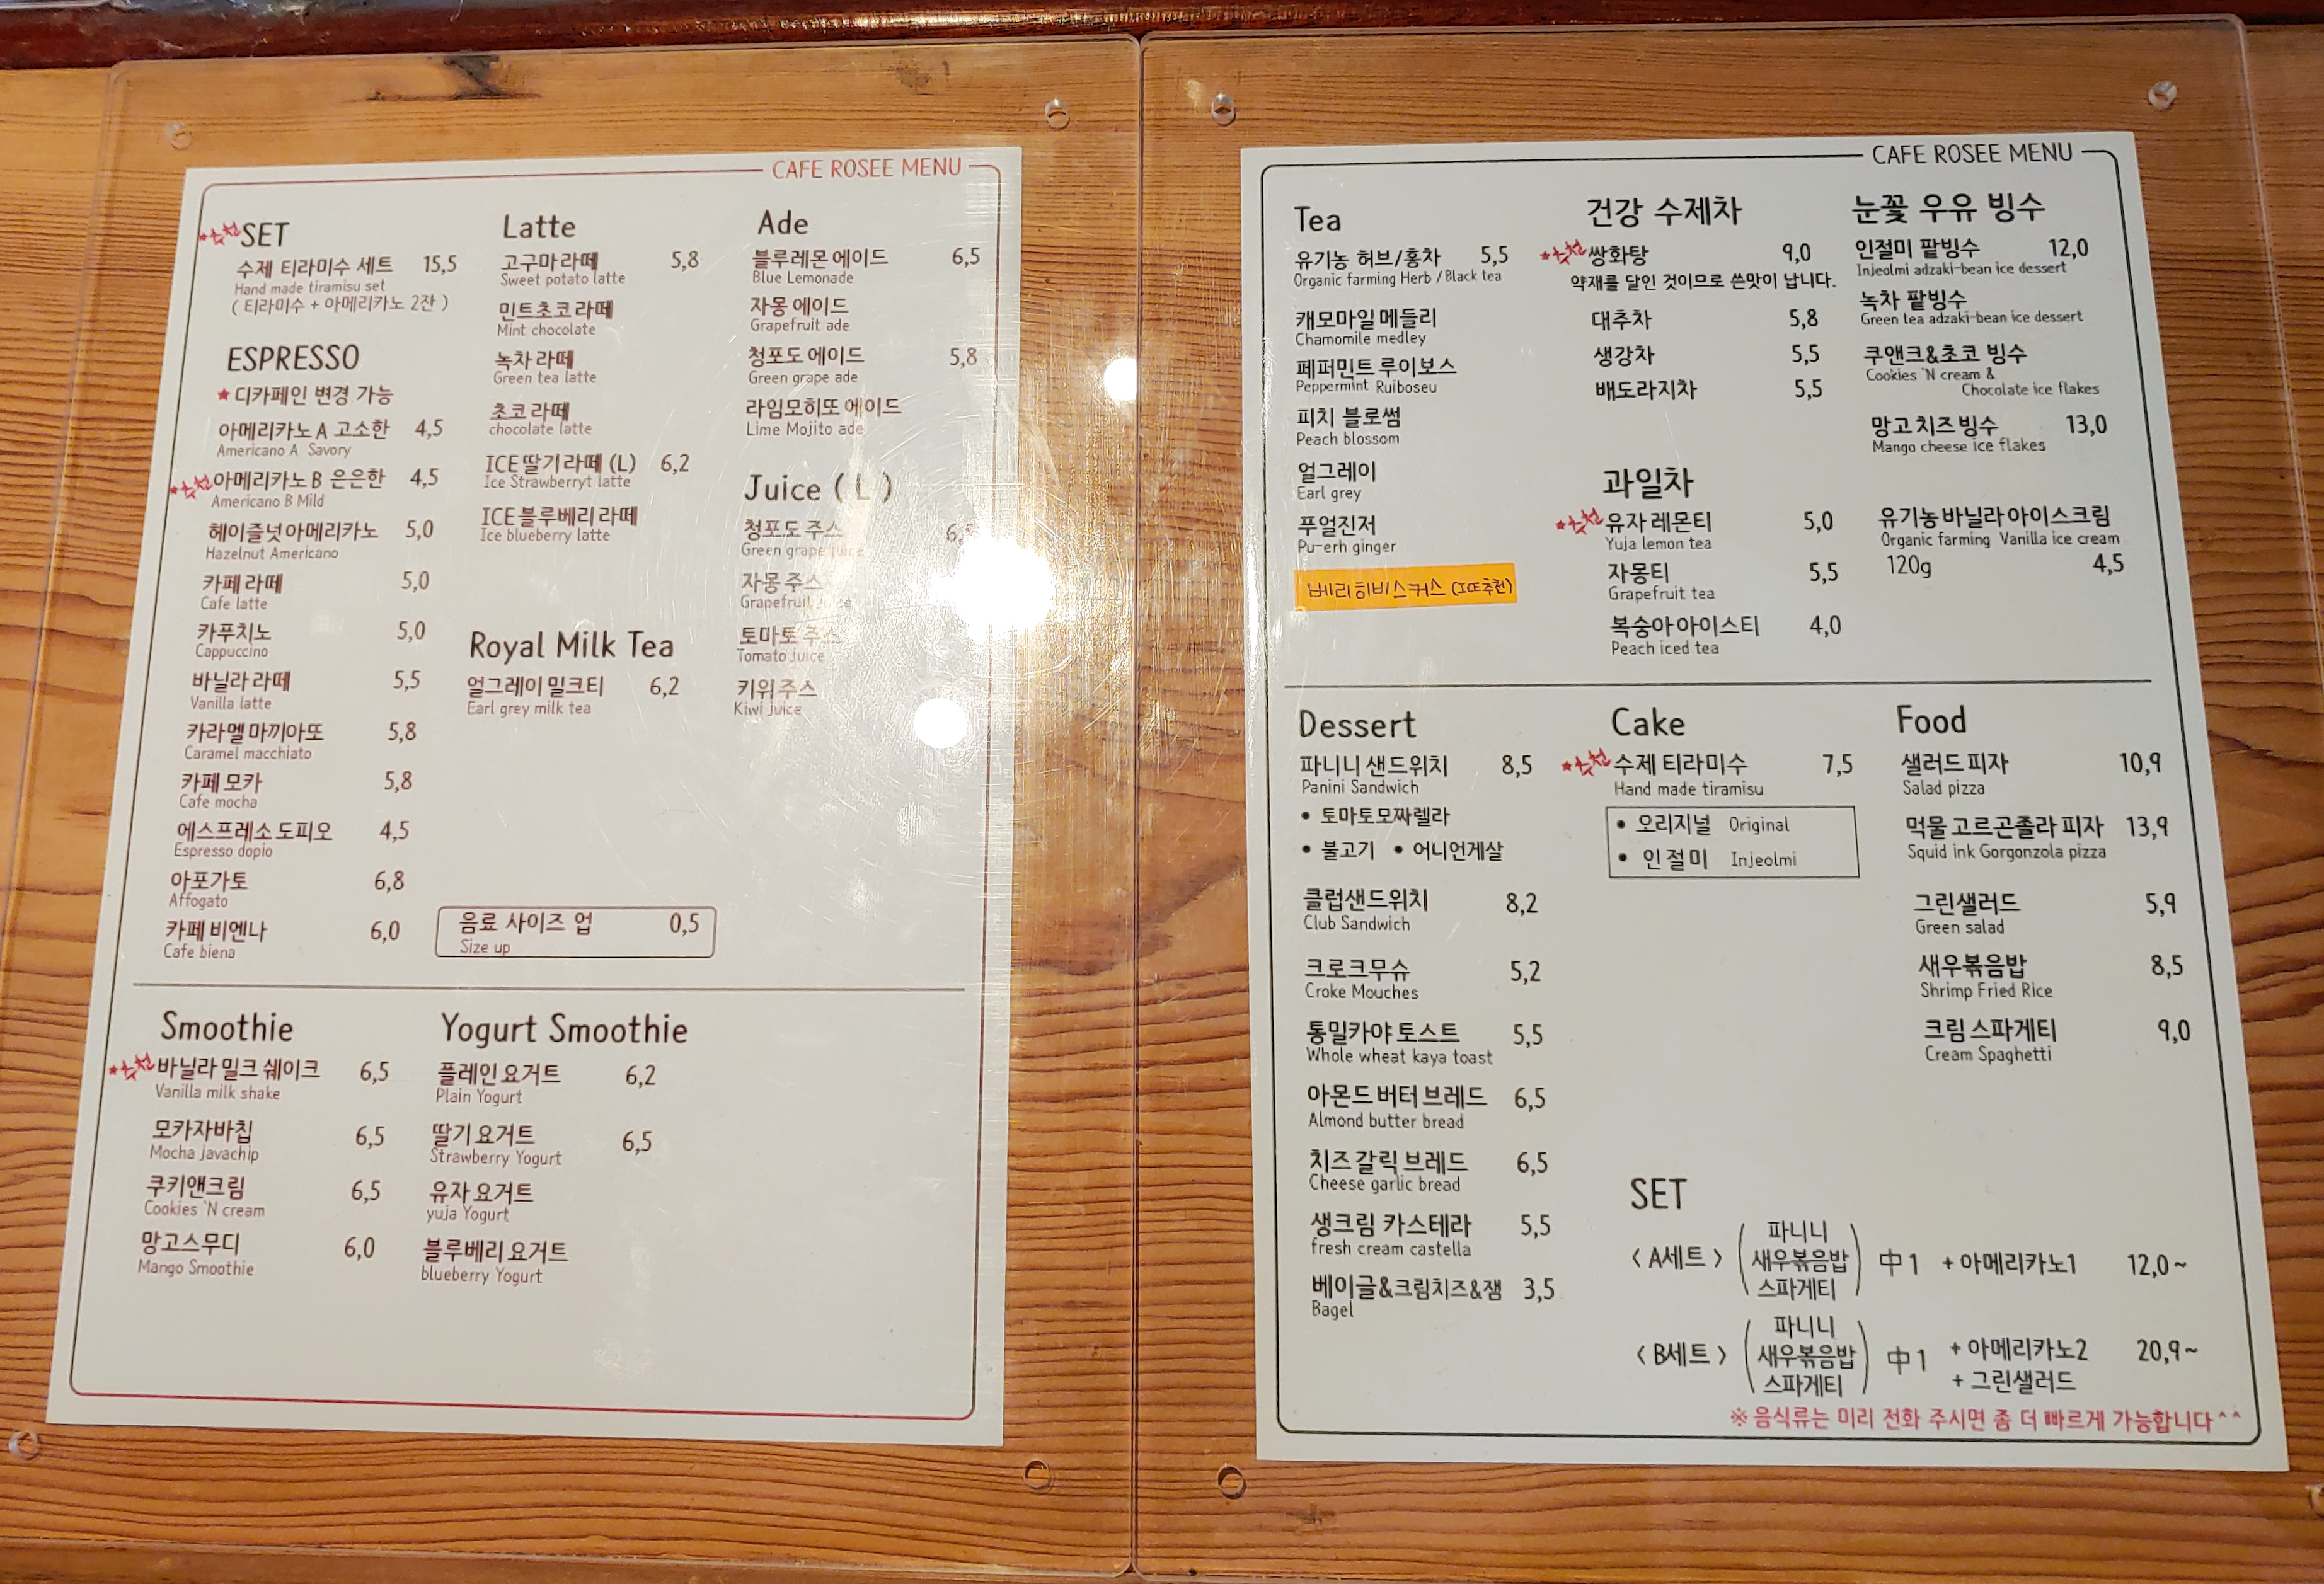 CAFE ROSEE MENU
★추천 SET
수제 티라미수 세트 15,5
Hand made tiramisu set
( 티라미수 + 아메리카노 2잔 )
ESPRESSO
★ 디카페인 변경 가능
아메리카노 A 고소한 4,5
Americano A Savory
★추천 아메리카노 B 은은한 4,5
Americano B Mild
헤이즐넛 아메리카노 5,0
Hazelnut Americano
카페 라떼 5,0
Cafe latte
카푸치노 5,0
Cappuccino
바닐라 라떼 5,5
Vanilla latte
카라멜 마끼아또 5,8
Caramel macchiato
카페 모카 5,8
Cafe mocha
에스프레소 도피오 4,5
Espresso dopio
아포가토 6,8
Affogato
카페 비엔나 6,0
Cafe biena
Latte
고구마 라떼 5,8
Sweet potato latte
민트초코 라떼
Mint chocolate
녹차 라떼
Green tea latte
초코 라떼
chocolate latte
ICE 딸기 라떼 (L) 6,2
Ice Strawberryt latte
ICE 블루베리 라떼
Ice blueberry latte
Royal Milk Tea
얼그레이 밀크티 6,2
Earl grey milk tea
음료 사이즈 업 0,5
Size up
Ade
블루레몬 에이드 6,5
Blue Lemonade
자몽 에이드
Grapefruit ade
청포도 에이드 5,8
Green grape ade
라임모히또 에이드
Lime Mojito ade
Juice ( L )
청포도 주스
Green grape juice
자몽 주스
Grapefruit juice
토마토 주스
Tomato juice
키위 주스
Kiwi juice
Smoothie
★추천 바닐라 밀크 쉐이크 6,5
Vanilla milk shake
모카자바칩 6,5
Mocha javachip
쿠키앤크림 6,5
Cookies `N cream
망고스무디 6,0
Mango Smoothie
Yogurt Smoothie
플레인 요거트 6,2
Plain Yogurt
딸기 요거트 6,5
Strawberry Yogurt
유자 요거트
yuja Yogurt
블루베리 요거트
blueberry Yogurt
CAFE ROSEE MENU
Tea
유기농 허브/홍차 5,5
Organic farming Herb /Black tea
캐모마일 메들리
Chamomile medley
페퍼민트 루이보스
Peppermint Ruiboseu
피치 블로썸
Peach blossom
얼그레이
Earl grey
푸얼진저
Pu-erh ginger
베리히비스커스 (ICE추천)
건강 수제차
★추천 쌍화탕 9,0
약재를 달인 것이므로 쓴맛이 납니다.
대추차 5,8
생강차 5,5
배도라지차 5,5
과일차
★추천 유자 레몬티 5,0
Yuja lemon tea
자몽티 5,5
Grapefruit tea
복숭아 아이스티 4,0
Peach iced tea
눈꽃 우유 빙수
인절미 팥빙수 12,0
Injeolmi adzaki-bean ice dessert
녹차 팥빙수
Green tea adzaki-bean ice dessert
쿠앤크&초코 빙수
Cookies `N cream &
Chocolate ice flakes
망고 치즈 빙수 13,0
Mango cheese ice flakes
유기농 바닐라 아이스크림
Organic farming Vanilla ice cream
120g 4,5
Dessert
파니니 샌드위치 8,5
Panini Sandwich
• 토마토모짜렐라
• 불고기 • 어니언게살
클럽샌드위치 8,2
Club Sandwich
크로크무슈 5,2
Croke Mouches
통밀카야 토스트 5,5
Whole wheat kaya toast
아몬드 버터 브레드 6,5
Almond butter bread
치즈 갈릭 브레드 6,5
Cheese garlic bread
생크림 카스테라 5,5
fresh cream castella
베이글&크림치즈&잼 3,5
Bagel
Cake
★추천 수제 티라미수 7,5
Hand made tiramisu
• 오리지널 Original
• 인절미 Injeolmi
Food
샐러드 피자 10,9
Salad pizza
먹물 고르곤졸라 피자 13,9
Squid ink Gorgonzola pizza
그린샐러드 5,9
Green salad
새우볶음밥 8,5
Shrimp Fried Rice
크림 스파게티 9,0
Cream Spaghetti
SET
파니니
< A세트 > ( 새우볶음밥 ) 中1 + 아메리카노1 12,0~
스파게티
파니니
+ 아메리카노2
< B세트 > ( 새우볶음밥 ) 中1 20,9~
+ 그린샐러드
스파게티
※ 음식류는 미리 전화 주시면 좀 더 빠르게 가능합니다^^